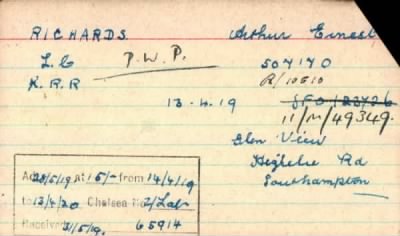 RICHARDS. Arthur Ernest
L.C P.W.P. 507170
K.R.R R/10510
13.4.19 
11/M/49349.
Glen View
Highclere Rd
Southampton
Ad 28/5/19 at 15/- from 14/4/19
to 13/4/20 Chelsea No. 2/Lab
Received 31/5/19. 65914